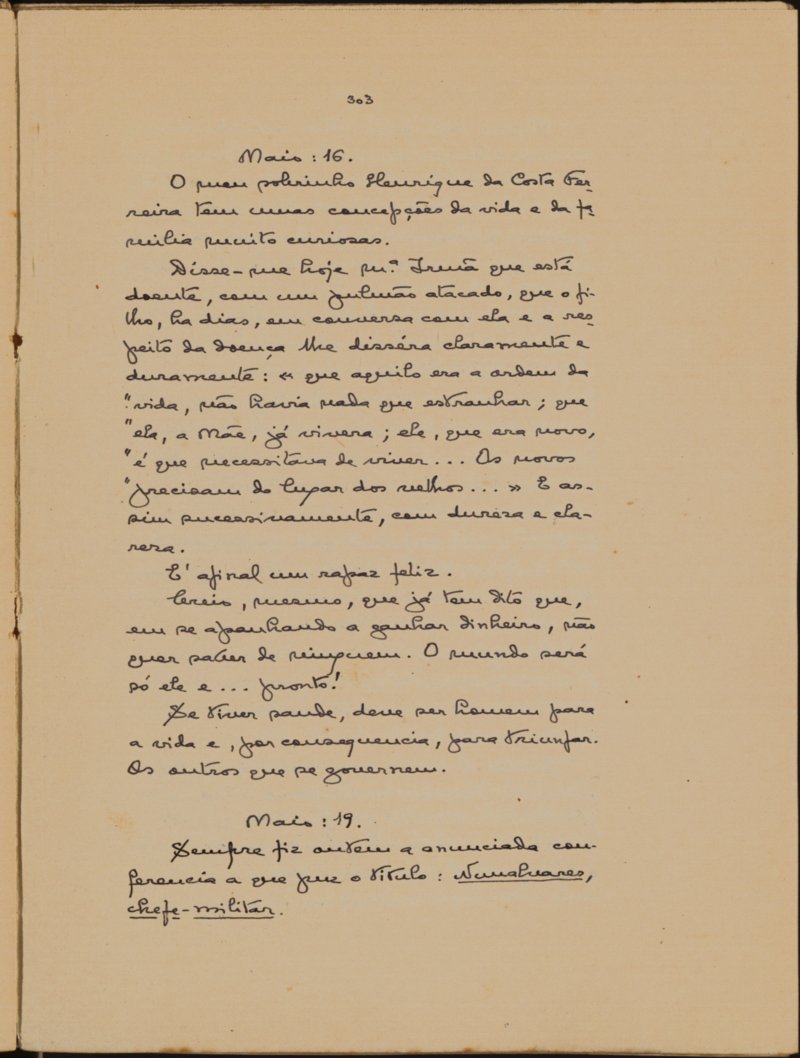 303
Maio : 16.
O meu sobrinho Henrique da Costa Fer-
reira tem umas concepções da vida e da fa-
milia muito curiosas.
Disse-me hoje m.ª Irmã que está
doente, com um pulmão atacado, que o fi-
lho, ha dias, em conversa com ela e a res-
peito da doença lhe disséra claramente e
duramente : « que aquilo era a ordem da
"vida, não havia nada que estranhar ; que
"ela, a Mãe, já vivera ; ele, que era novo,
"é que necessitava de viver... Os novos
"precisam do lugar dos velhos... » E as-
sim sucessivamente, com dureza e cla-
reza.
E' afinal um rapaz feliz.
Creio, mesmo, que já tem dito que,
em se apanhando a ganhar dinheiro, não
quer saber de ninguem. O mundo será
só ele e... pronto!
Se tiver saude, deve ser homem para
a vida e, por consequencia, para triunfar.
Os outros que se governem.
Maio : 19.
Sempre fiz ontem a anunciada con-
ferencia a que puz o titulo : Nunalvares,
chefe-militar.